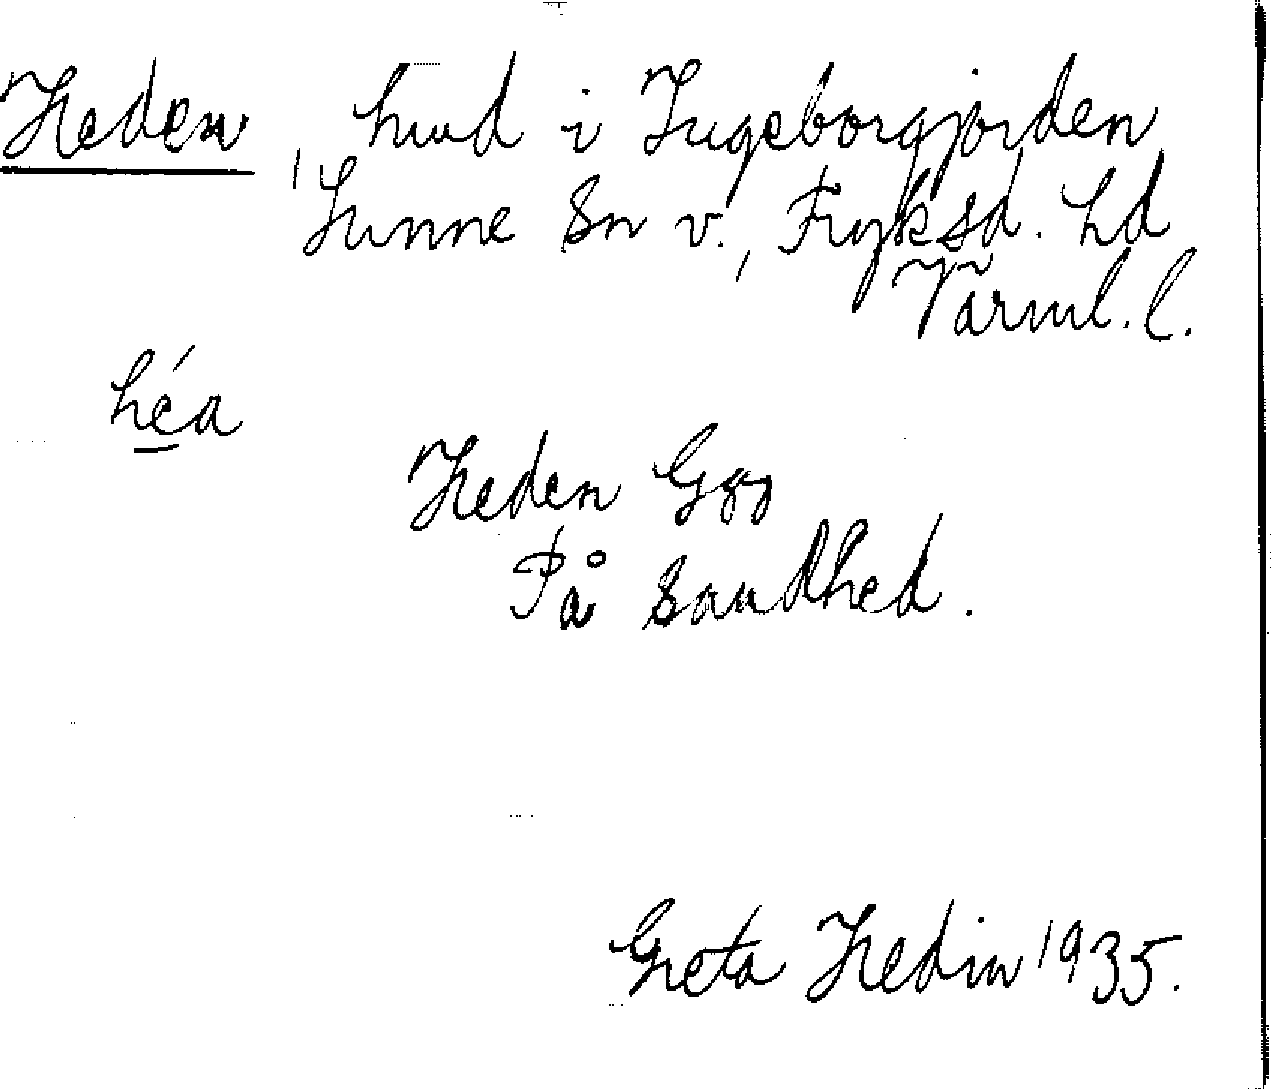 Heden, hmd i Ingeborgjorden
Sunne sn v., Fryksd. hd
Värml. l.
héa
Heden Ggg
På sandhed.
Greta Hedin 1935.